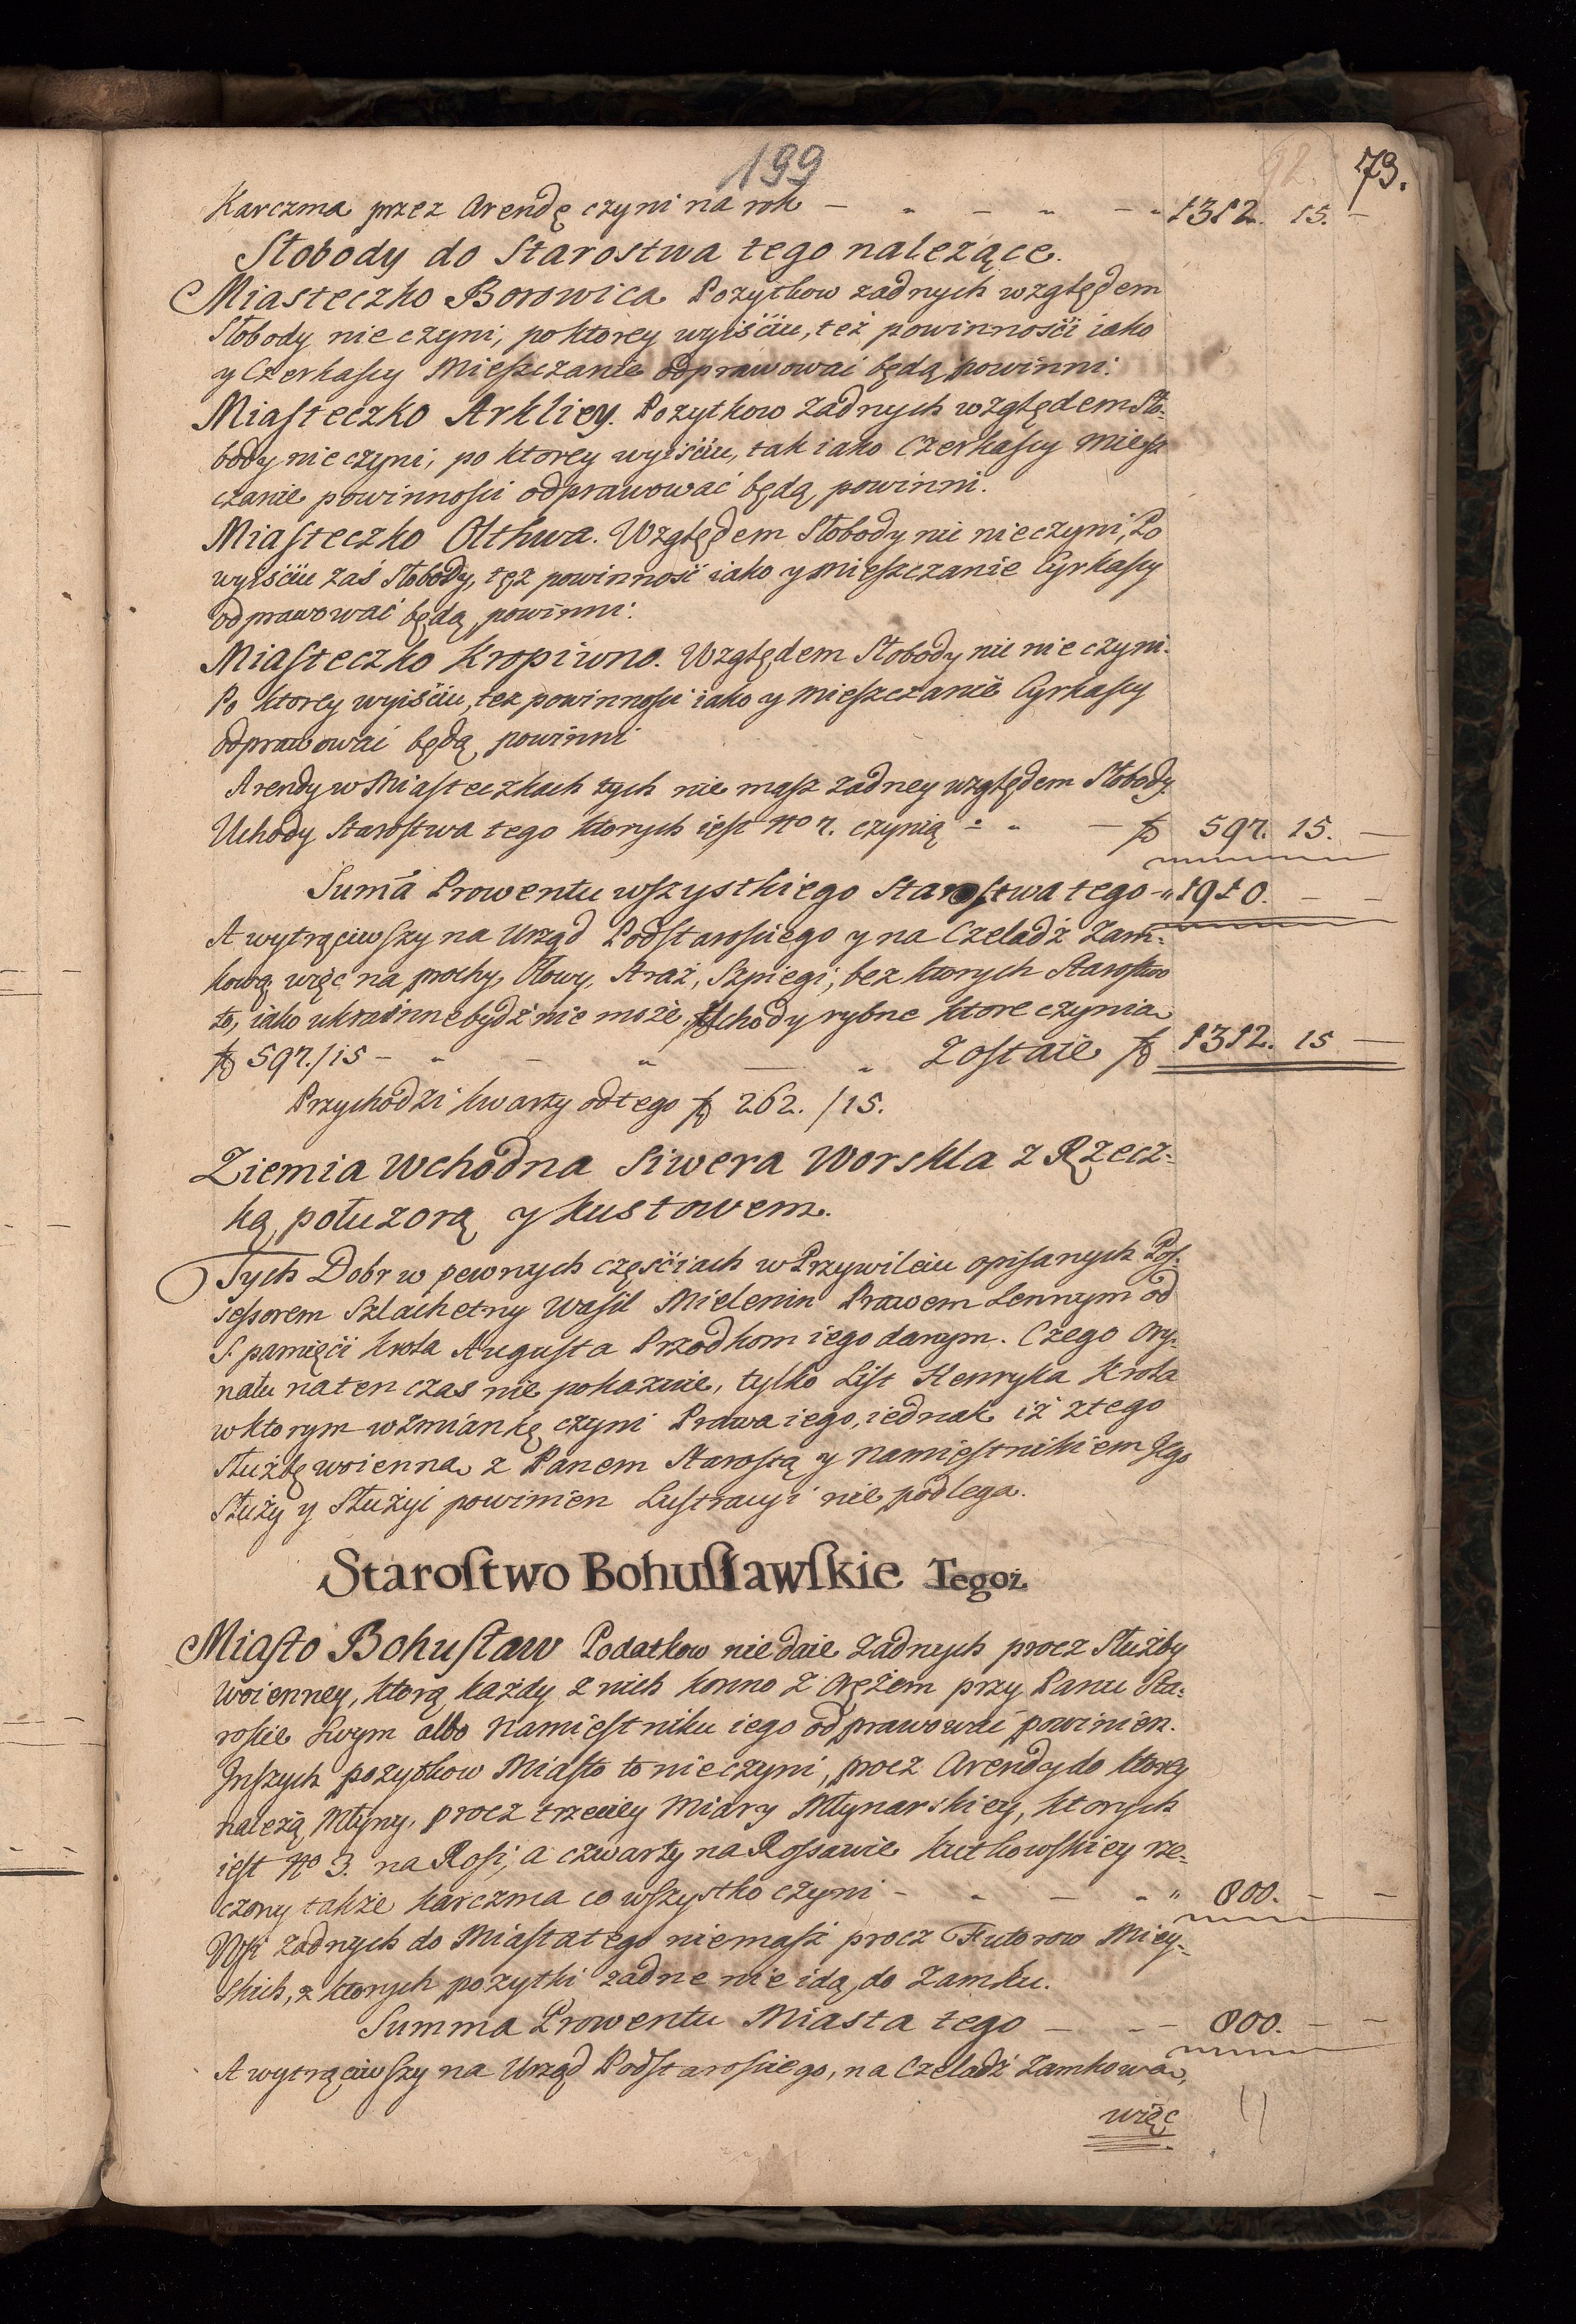 199
92. 73.
Karczma przez Arendę czyni na rok — " — " — " 1312. 15. —
Słobody do Starostwa tego należące.
Miasteczko Borowica Pozytkow zadnych względem
Słobody nie czyni, po ktorey wyiściu, też powinności iako
y Czerkascy Mieszczanie odprawowai będą powinni.
Miasteczko Arkliey. Pozytkow zadnych względem Sło-
body nie czyni, po ktorey wyiściu, tak iako Czerkascy Miesz
czanie powinności odprawować będą, powinni.
Miasteczko Olthwa. Względem Słobody nic nie czyni, Po
wyiściu zaś Słobody, tęż powinność iako y Mieszczanie Cyrkascy
odprawować będą, powinni.
Miasteczko Kropiwno. Względem Słobody nic nie czyni.
Po ktorey wyiściu, tez powinności iako y Mieszczanie Cyrkascy
odprawowai będą powinni
Arendy w Miasteczkach tych nie masz zadney względem Słobody.
Uchody Starostwa tego ktorych iest No 7. czynią " " — fl 597. 15. —
Suma Prowentu wszystkiego Starostwa tego " 1910. — —
A wytrąciwszy na Urząd Podstarosciego y na Czeladź Zam-
kową, więc na prochy, Ołowy, Straż, Szpiegi, bez ktorych Starostwo
to, iako ukrainne bydź nie może, Uchody rybne ktore czynia
fl 597./15 — " — " — " Zostaie fl 1312. 15 —
Przychodzi kwarty od tego fl 262. /15.
Ziemia Wchodna Siwera Worskla z Rzecz-
ką, połuzorą y Kustowem.
Tych Dobr w pewnych częściach w Przywileiu opisanych Pos-
sessorem Szlachetny Wasil Mielenin Prawem Lennym od
S. pamięci Krola Augusta Przodkom iego danym. Czego Ory-
nału na ten czas nie pokazuie, tylko List Henryka Krola
w ktorym wzmiankę czyni Prawa iego, iednak iż z tego
Służbę woienna z Panem Starostą y Namiestnikiem Jego
Służy y Służyi powinien Lustracyi nie podlega.
Starostwo Bohusławskie Tegoż
Miasto Bohusław Podatkow nie daie zadnych procz Służby
Woienney, ktorą każdy z nich konno z Orężem przy Panu Sta-
roście Swym albo Namiestniku iego odprawować powinien.
Jnszych pozytkow Miasto to nie czyni, procz Arendy do ktorey
należą, Młyny, procz trzeciey Miary Młynarskiey, ktorych
iest No 3. na Rosi, a czwarty na Rossawie Kutkowskiey rze-
czony także karczma co wszystko czyni — " — " " 800. — —
Wsi zadnych do Miasta tego niemasz procz Futorow Miey-
skich, z ktorych pozytki zadne nie idą, do Zamku.
Summa Prowentu Miasta tego — — — 800. — —
A wytrąciwszy na Urząd Podstarosciego, na Czeladź Zamkowa,
więc